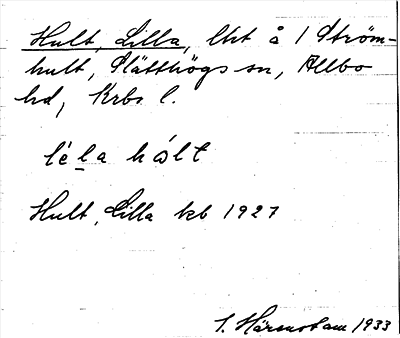 Hult, Lilla, lht å 1 Ström-
hult, Slätthögs sn, Allbo
hd, Krbs l.
lé la hålt
Hult, Lilla kb 1927
1933